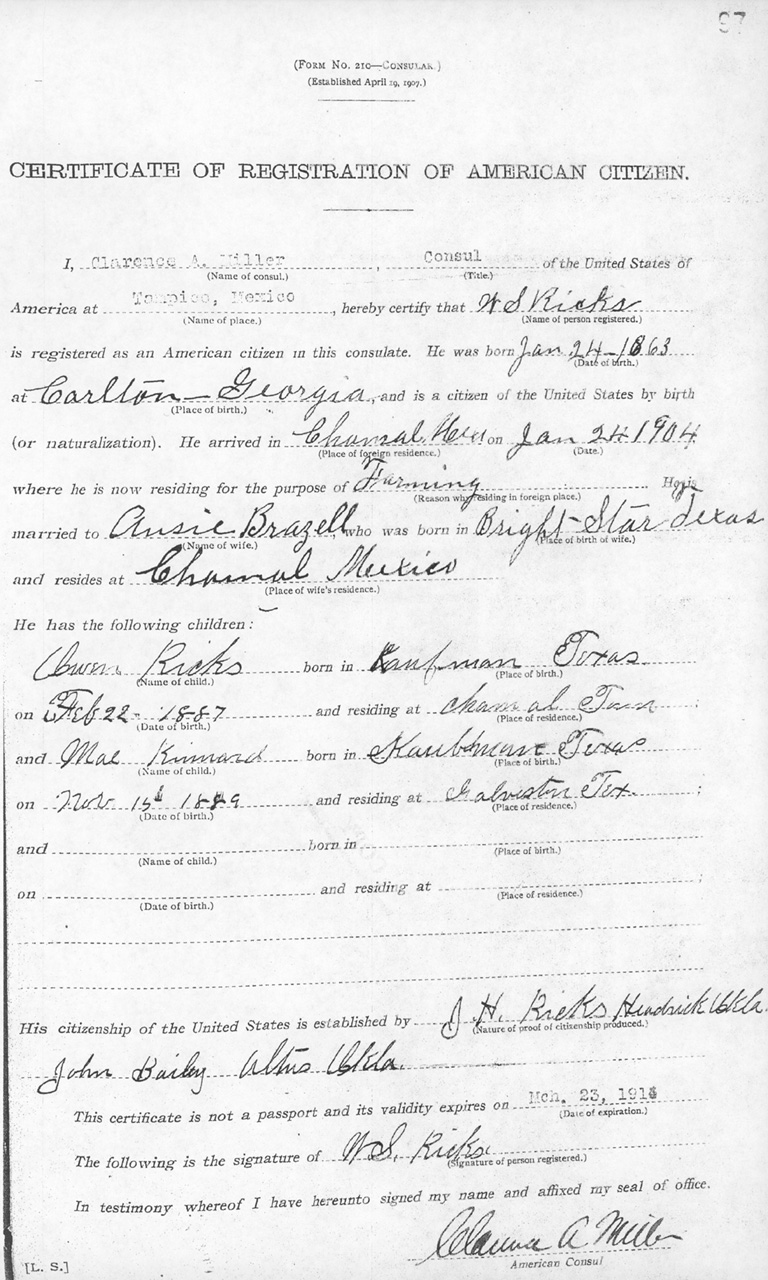 97
(FORM NO. 210—CONSULAR.)
(Established April 19, 1907.)
CERTIFICATE OF REGISTRATION OF AMERICAN CITIZEN.
I, Clarence A. Miller, Consul of the United States of
(Name of consul.) (Title.)
America at Tampico, Mexico, hereby certify that W S Ricks
(Name of place.) (Name of person registered.)
is registered as an American citizen in this consulate. He was born Jan 24-1863
(Date of birth.)
at Carlton - Georgia, and is a citizen of the United States by birth
(Place of birth.)
(or naturalization). He arrived in Chamal Mex on Jan 24 1904
(Place of foreign residence.) (Date.)
where he is now residing for the purpose of Farming He is
(Reason why residing in foreign place.)
married to Ansie Brazell, who was born in Bright Star Texas
(Name of wife.) (Place of birth of wife.)
and resides at Chamal Mexico
(Place of wife's residence.)
He has the following children:
Owen Ricks born in Kaufman Texas
(Name of child.) (Place of birth.)
on Feb 22 - 1887 and residing at Chamal Tam
(Date of birth.) (Place of residence.)
and Mae Kinnard born in Kaufman Texas
(Name of child.) (Place of birth.)
on Nov 15 1889 and residing at Galveston Tex. ;
(Date of birth.) (Place of residence.)
and born in
(Name of child.) (Place of birth.)
on and residing at ;
(Date of birth.) (Place of residence.)
His citizenship of the United States is established by J. H. Ricks Headrick Okla.
(Nature of proof of citizenship produced.)
John Bailey Altus Okla.
This certificate is not a passport and its validity expires on Mch. 23, 191
(Date of expiration.)
The following is the signature of W.S. Ricks
(Signature of person registered.)
In testimony whereof I have hereunto signed my name and affixed my seal of office.
Clarence A Miller
[L. S.] American Consul